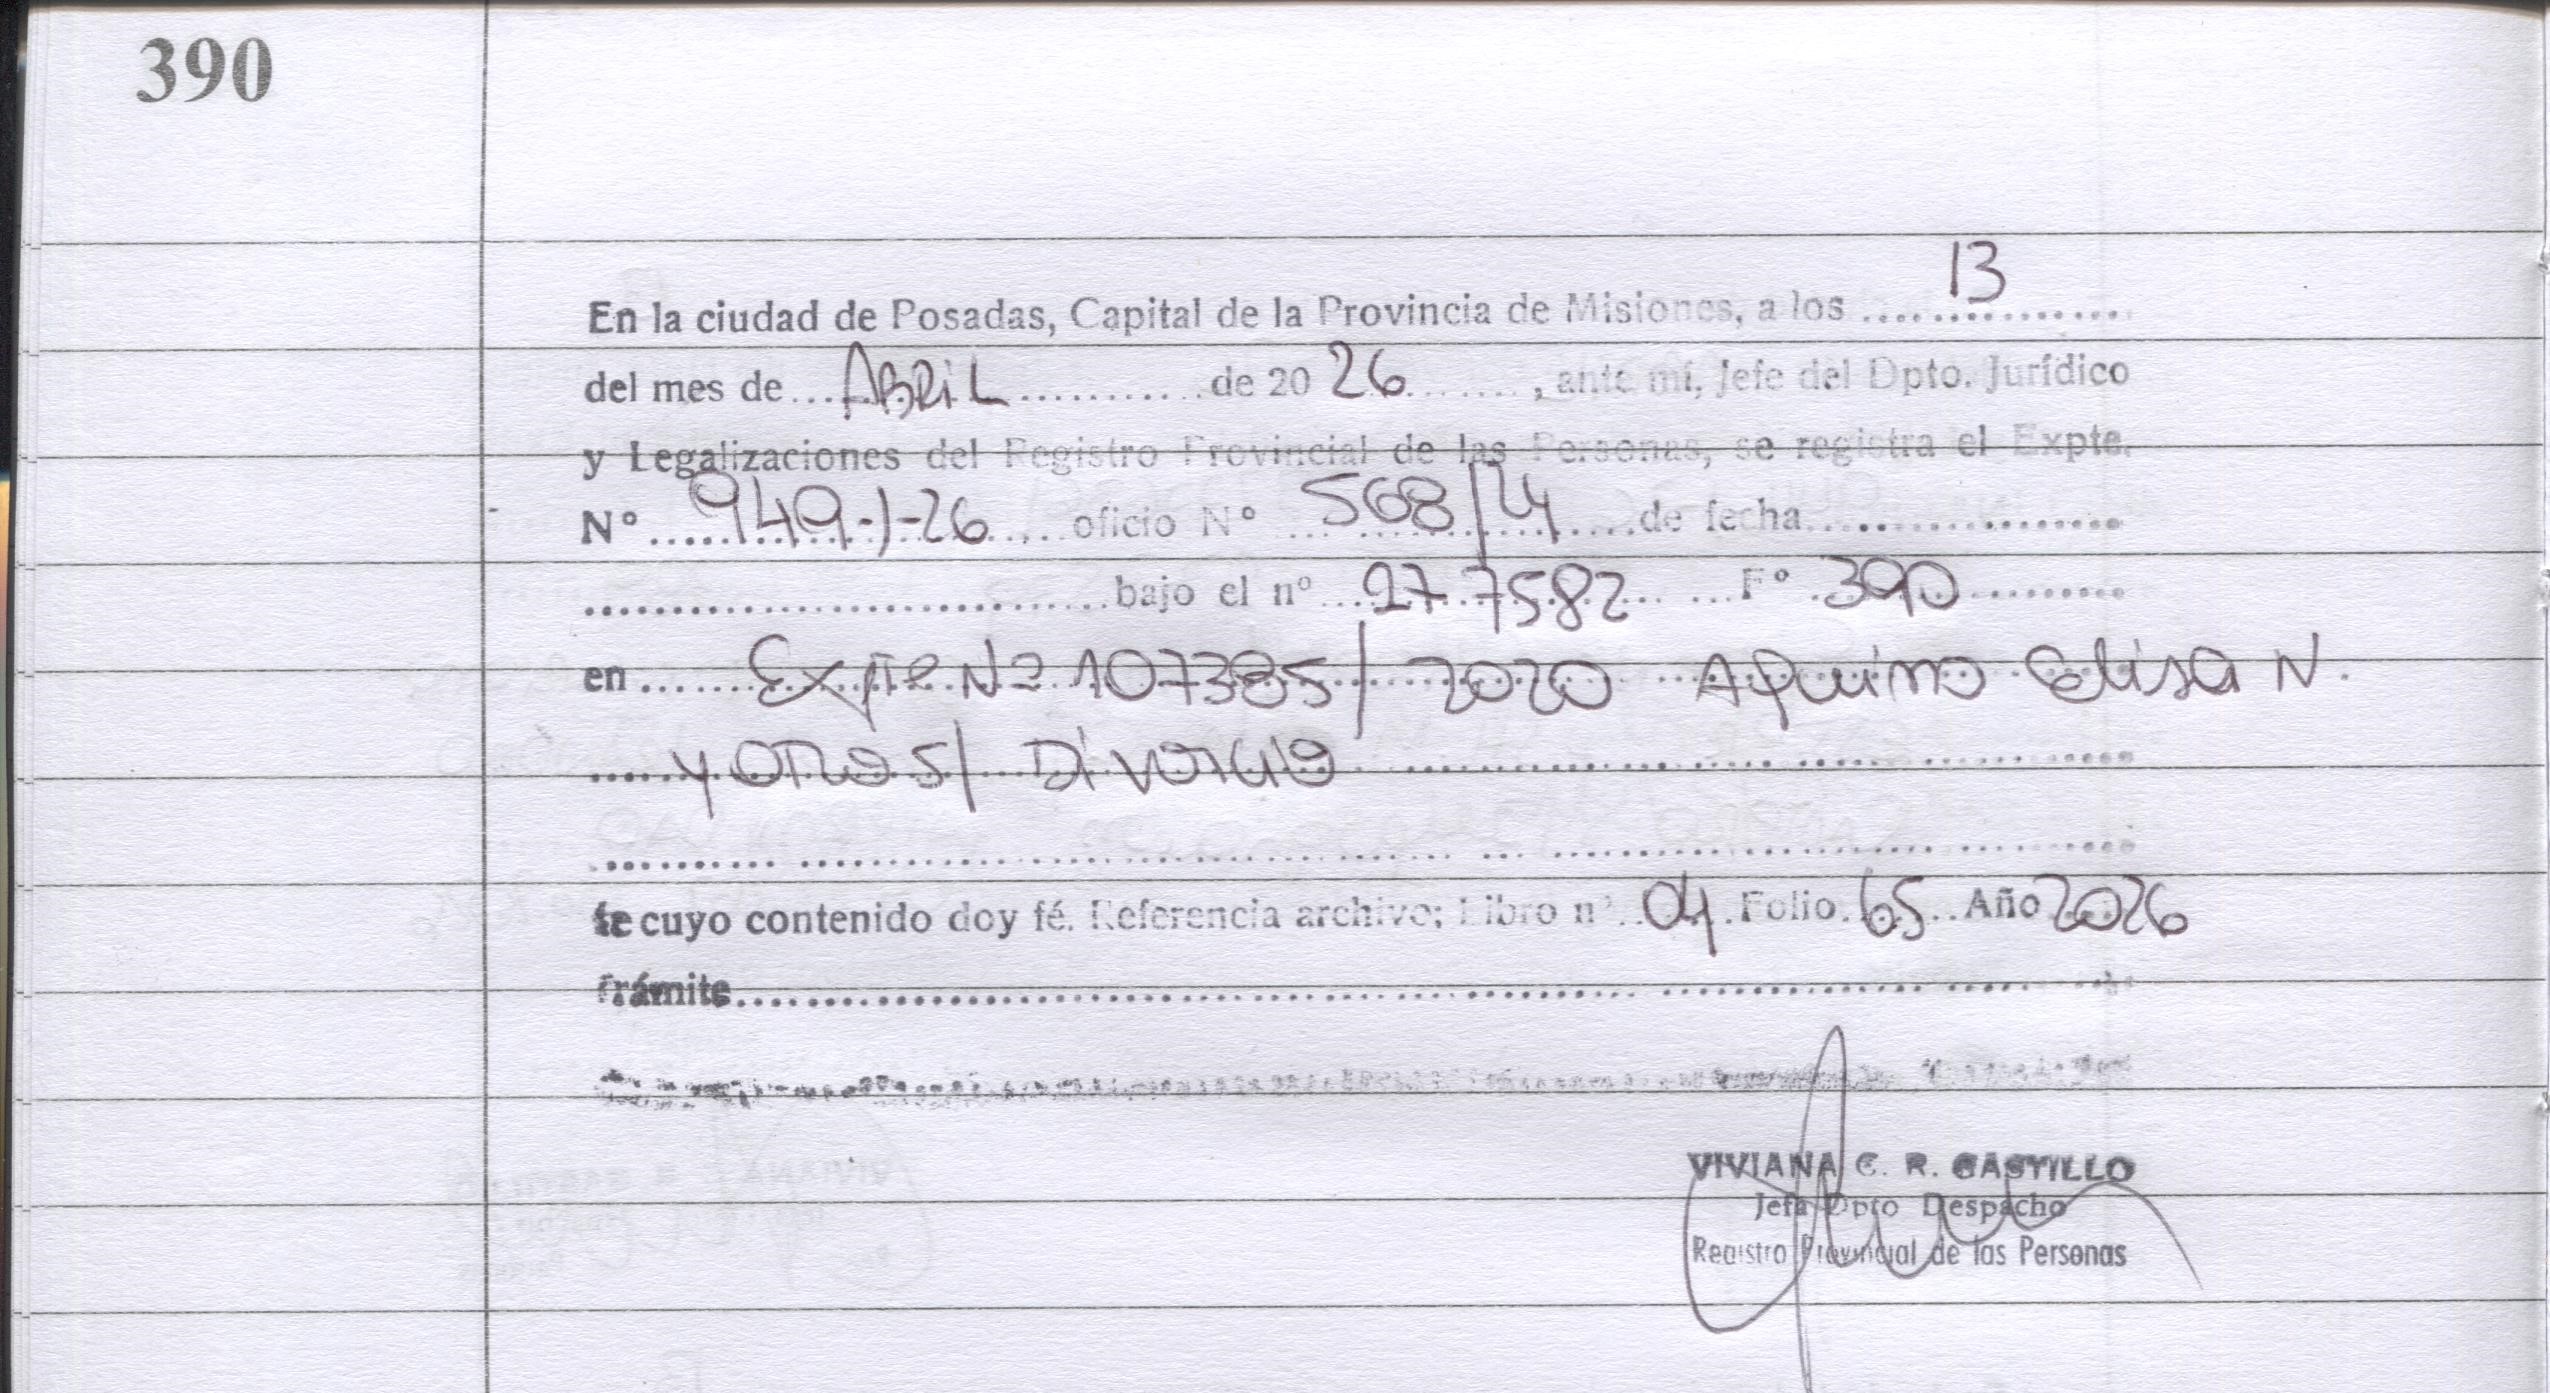 390
En la ciudad de Posadas, Capital de la Provincia de Misiones, a los 13
del mes de ABRIL de 20 26, ante mí, Jefe del Dpto. Jurídico
y Legalizaciones del Registro Provincial de las Personas, se registra el Expte.
N° 949-J-26 oficio N° 568/24 de fecha
bajo el n° 27 7582 F° 390
en Expte Nº 107385/2020 Aquino Elisa N.
y OTRO S/ Divorcio
de cuyo contenido doy fé. Referencia archivo; Libro n° 04 Folio 65 Año 2026
Trámite
VIVIANA C. R. CASTILLO
Jefa Dpto Despacho
Registro Provincial de las Personas